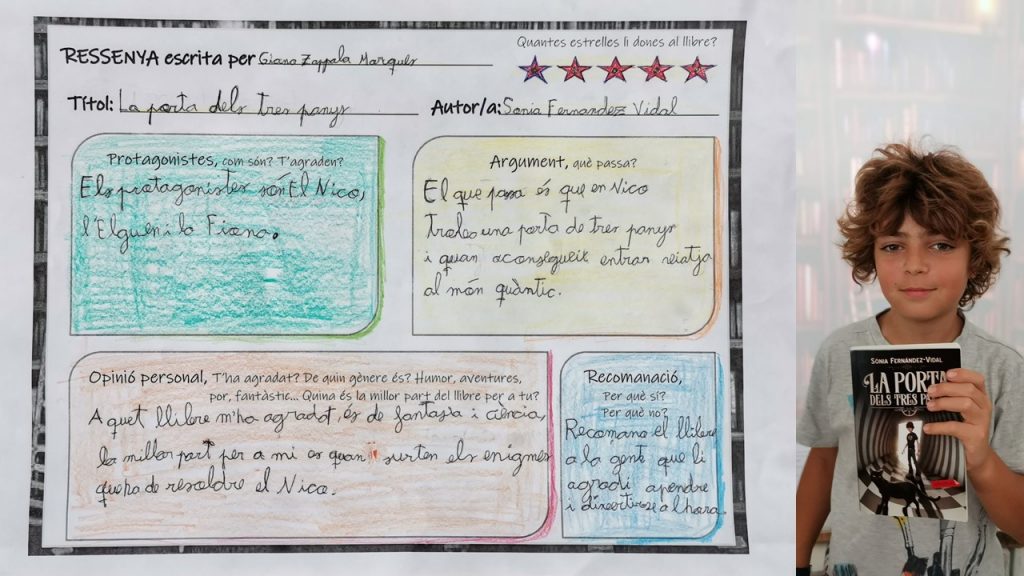 Quantes estrelles li dones al llibre?
RESSENYA escrita per Giano Zappala Marques
Títol: La porta dels tres panys
Autor/a: Sonia Fernandez Vidal
Protagonistes, com són? T'agraden?
Els protagonistes són El Nico,
l'Elguen i la Fiona.
Argument, què passa?
El que passa és que en Nico
troba una porta de tres panys
i quan aconsegueix entrar viatja
al món quàntic.
Opinió personal, T'ha agradat? De quin gènere és? Humor, aventures,
por, fantàstic... Quina és la millor part del llibre per a tu?
Aquet llibre m'ha agradat, és de fantasia i ciència,
la millor part per a mi es quan surten els enigmes
que ha de resoldre el Nico.
Recomanació,
Per què sí?
Per què no?
Recomano el llibre
a la gent que li
agradi apendre
i divertirse al hora.
SONIA FERNÁNDEZ-VIDAL
LA PORTA
DELS TRES